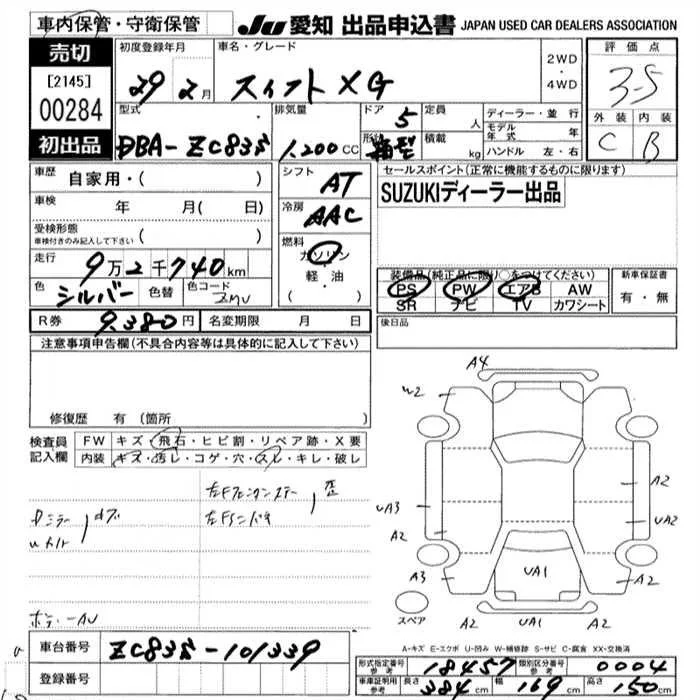 車内保管・守衛保管 JU 愛知 出品申込書 JAPAN USED CAR DEALERS ASSOCIATION
売切
[2145]
00284
初出品
初度登録年月
29 2月
車名・グレード
スイフト XG
2WD
・
4WD
評価点
3-5
外装 内装
C B
型式
DBA-ZC83S
排気量
1,200 CC
ドア
5
形状
箱型
定員
人
積載
kg
ディーラー・並行
モデル年式 年
ハンドル 左・右
車歴 自家用・( )
車検 年 月( 日)
受検形態
車検付きのみ記入して下さい ( )
走行 9万2千740km
色 シルバー 色替 色コード ZMU
R券 9,380円 名変期限 月 日
シフト
AT
冷房
AAC
燃料
ガソリン
軽・油
( )
セールスポイント(正常に機能するものに限ります)
SUZUKIディーラー出品
装備品(純正品に限り○をつけてください)
PS PW エアB AW
SR ナビ TV カワシート
新車保証書
有・無
後日品
注意事項申告欄(不具合内容等は具体的に記入して下さい)
修復歴 有(箇所 )
検査員記入欄
FW キズ・飛石・ヒビ割・リペア跡・X要
内装 キズ・汚レ・コゲ・穴・スレ・キレ・破レ
ボデーAU
A4
W2
A2
UA3
UA2
A2
A3
UA1
A2
スペア
A2 UA1 A2
A-キズ E-エクボ U-凹み W-補修跡 S-サビ C-腐食 XX-交換済
車台番号 ZC83S-101339
登録番号
形式指定番号 参考 18457 類別区分番号 参考 0004
車庫証明用 参考 長さ 384cm 幅 169cm 高さ 150cm